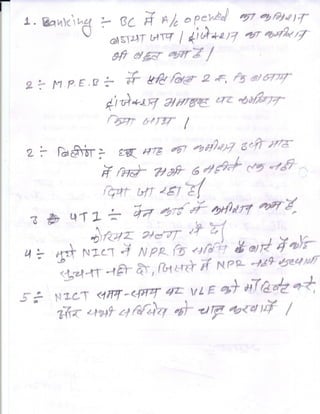 1. Banking ÷ BC में A/c opened का कमिशन
बढाया जाय / ट्रांजेक्शन का कमीशन
भी बहुत कम है |
2 ÷ M.P.E.B ÷ में प्रति बिल 2 रु. कि बजाय
ट्रांजेक्शन अमाउण्ट पर कमीशन
किया जाय |
2 ÷ बिलींग ÷ माह का कमीशन उसी माह
में मिले अभी 6 महीने तक नही
दिया जा रहा है|
3 UTI ÷ पेन कार्ड में कमीशन कम है,
कोरियर अलग से दें
4 ÷ मुझे NICT ने NPR कि सर्विस के बारे में कोई
सुचना नही दी, जिससे में NPR नही करवाया
5 ÷ NICT समय-समय पर VLE को मोटिवेट करे,
और सभी सर्विसेस को चालू करवायें |